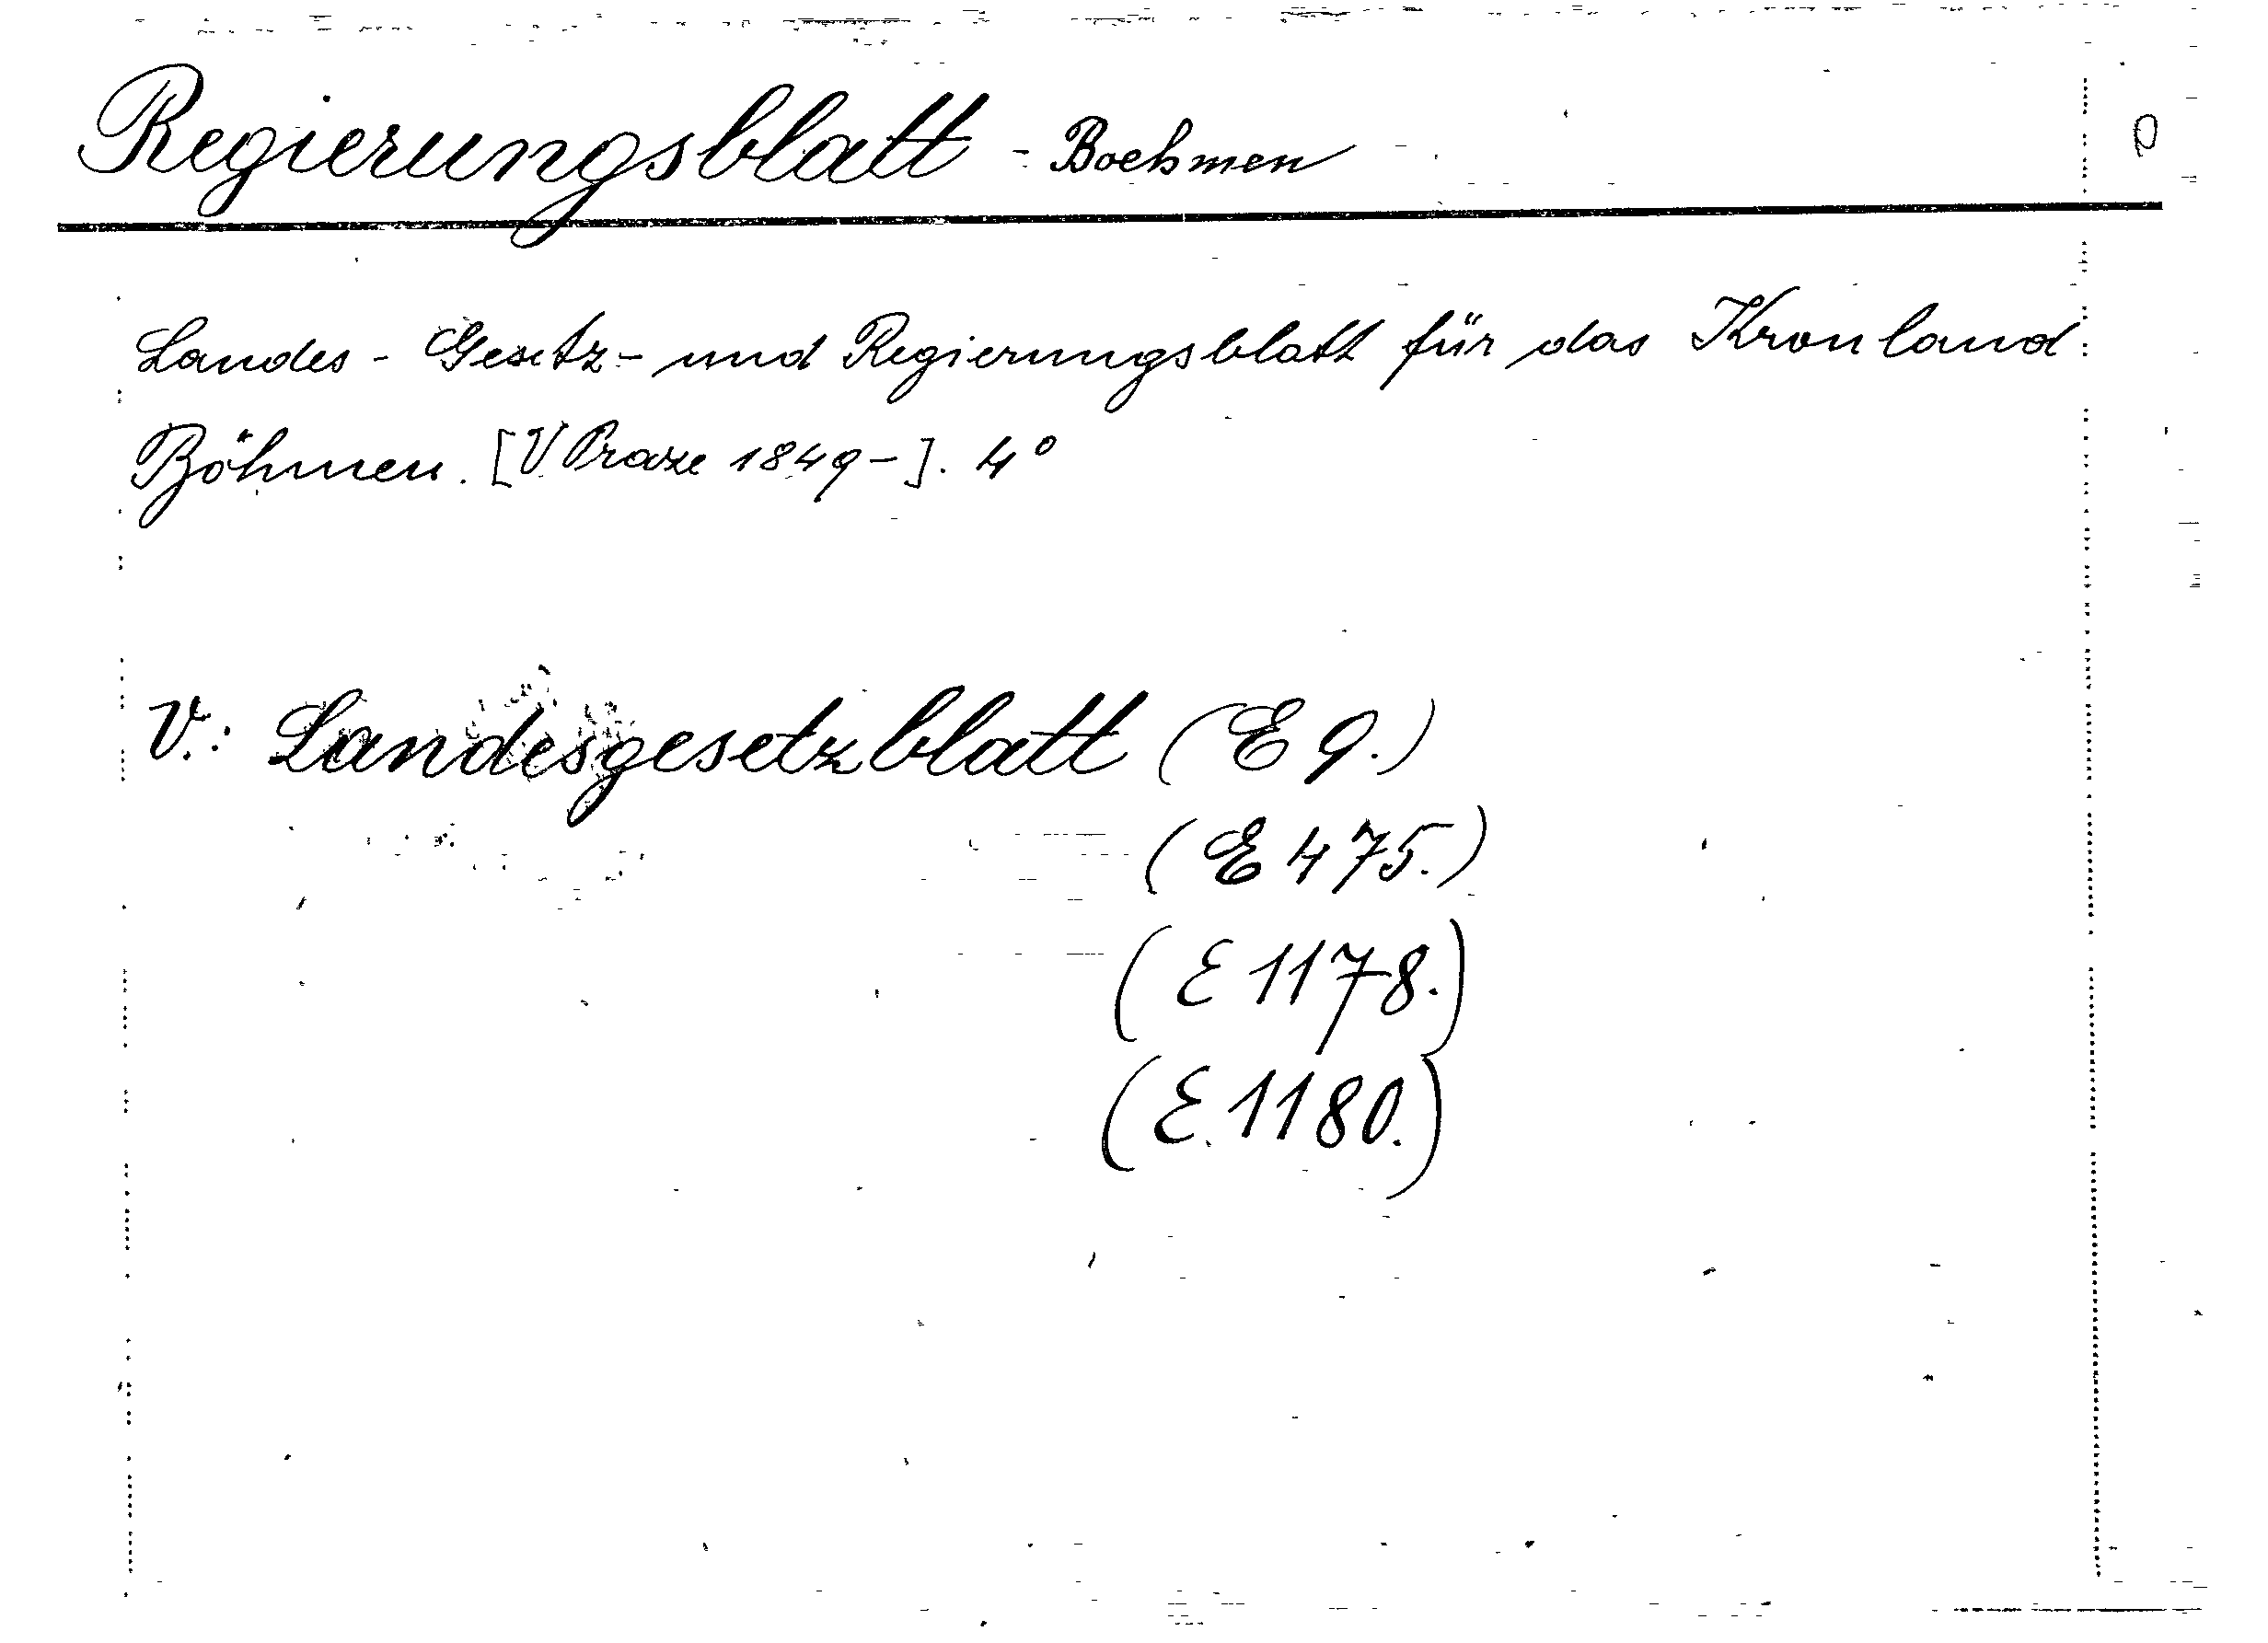 Regierungsblatt - Boehmen
Landes - Gesetz - und Regierungsblatt für das Kronland
Böhmen. [V Praze 1849-]. 4°
V.: Landesgesetzblatt (E 9.)
(E 475.)
(E 1178.)
(E. 1180.)